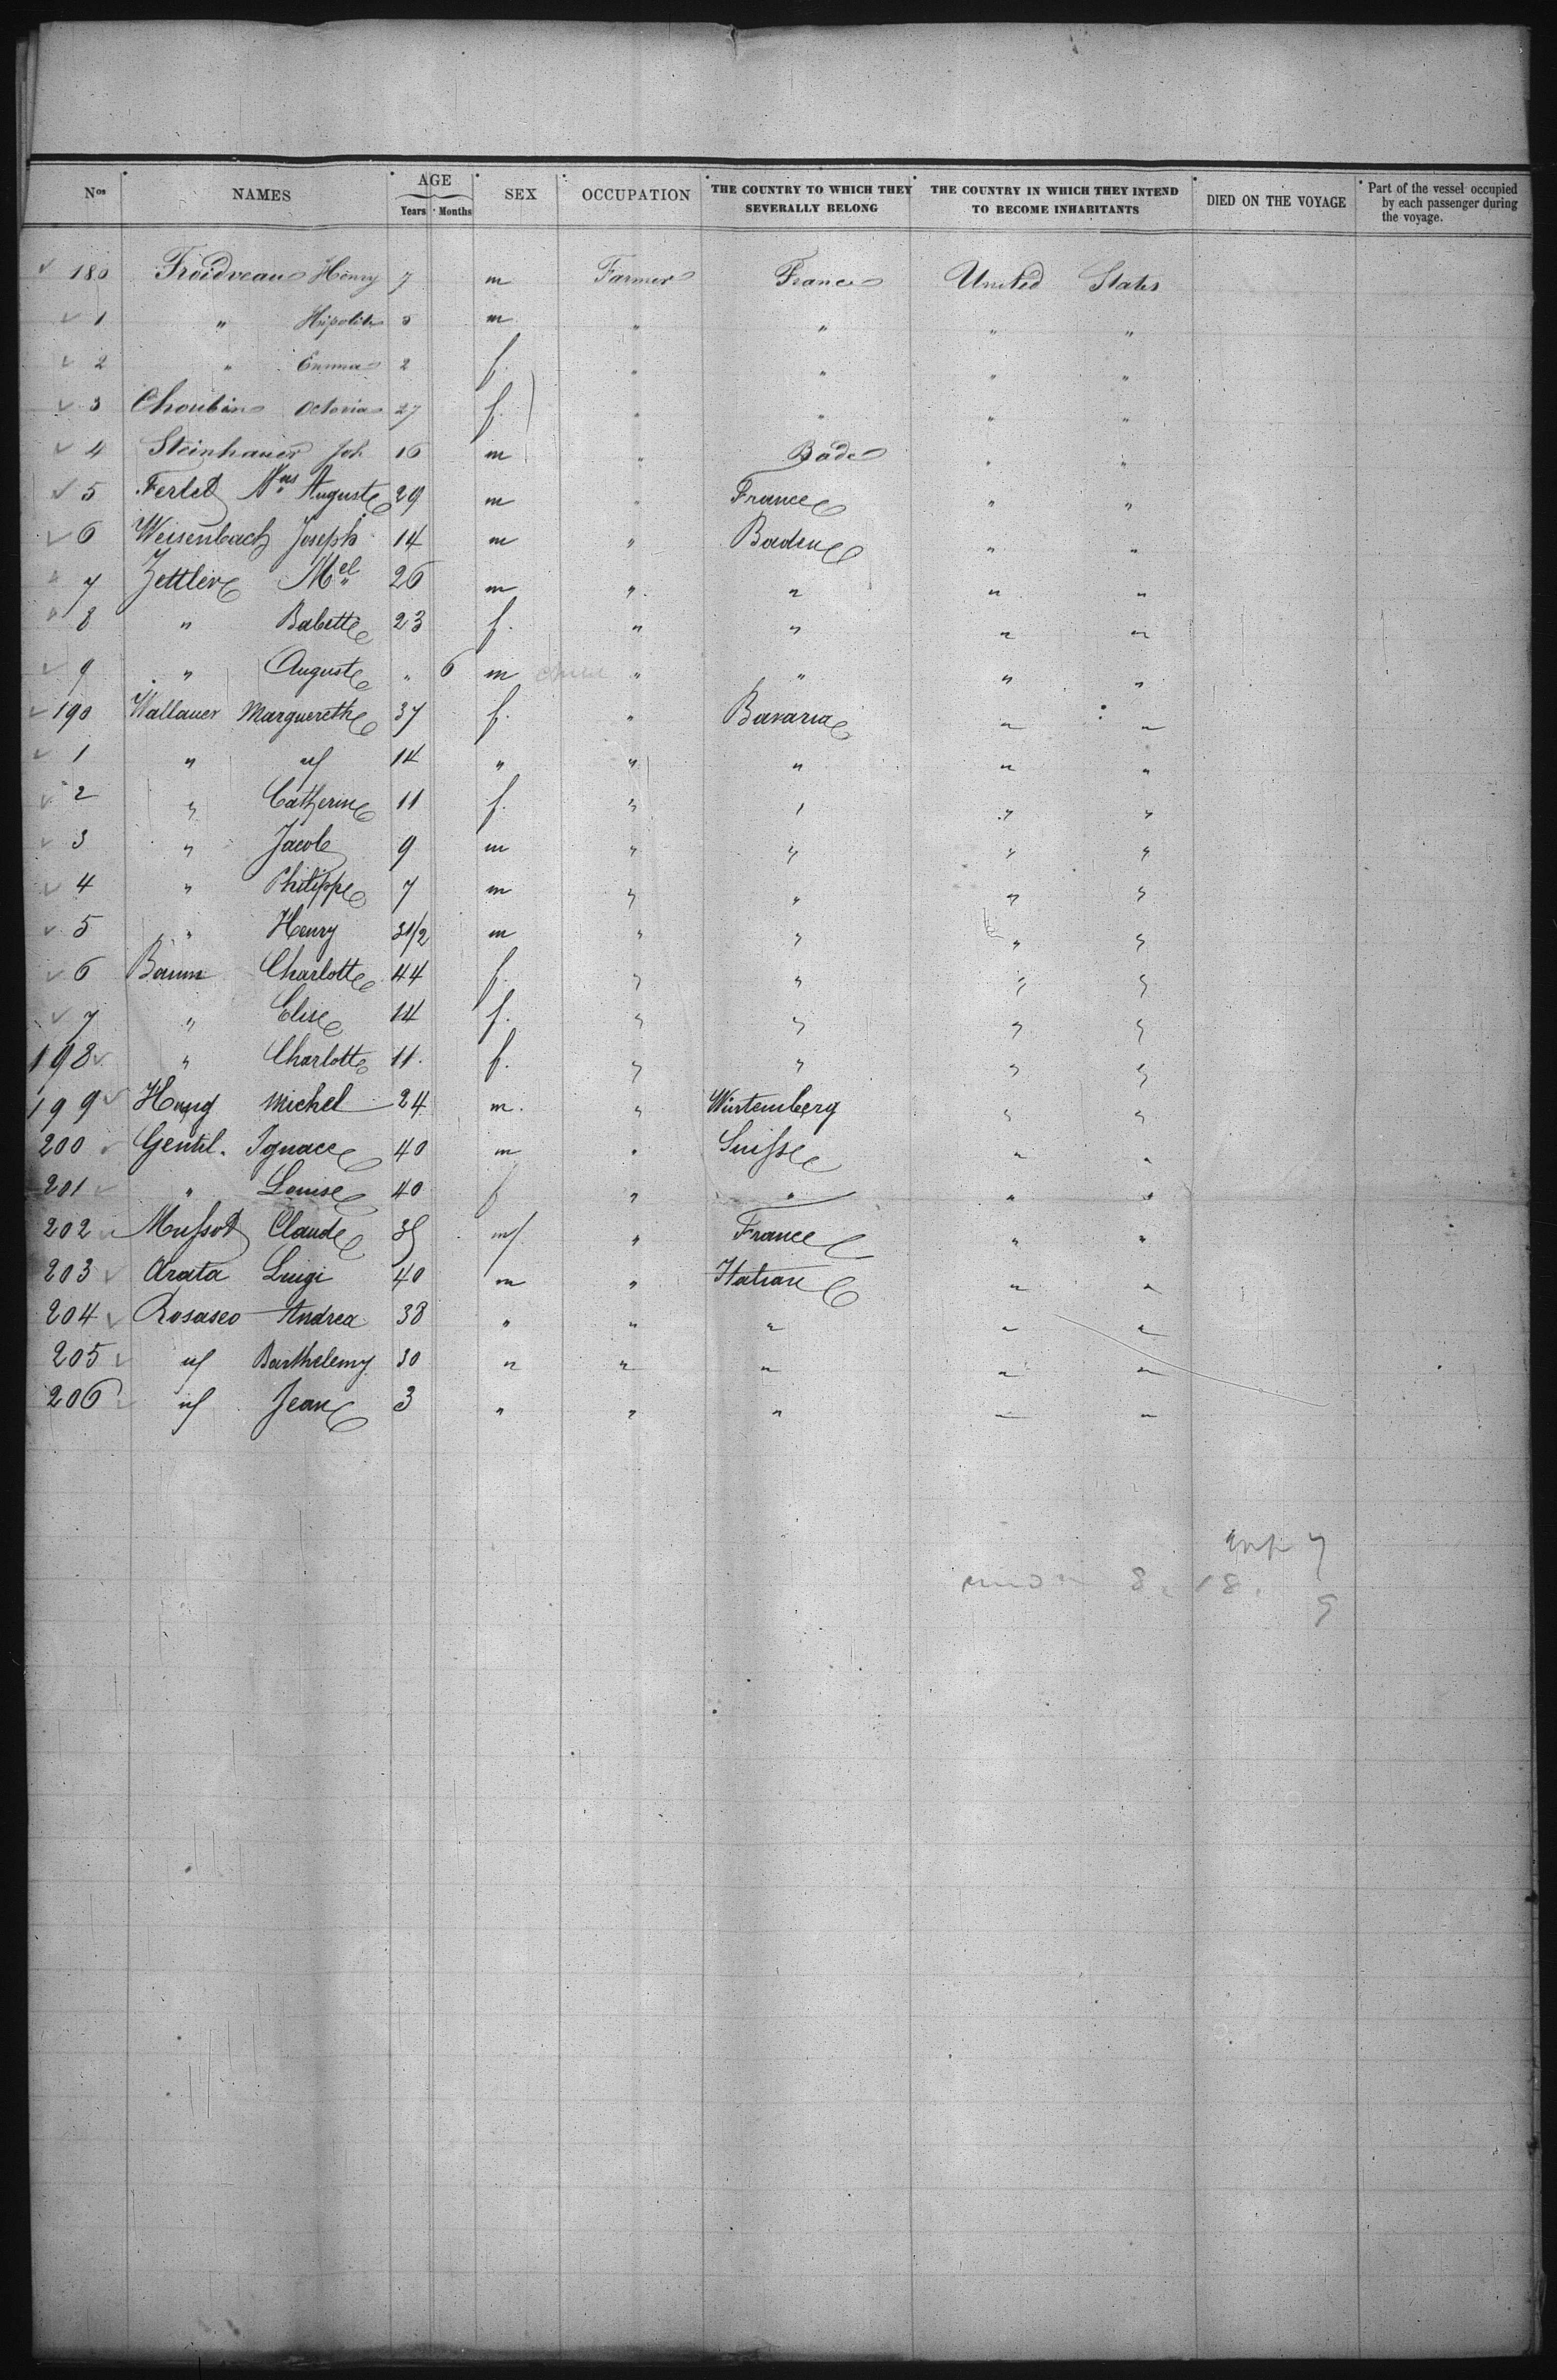 Nos NAMES AGE Years Months SEX OCCUPATION THE COUNTRY TO WHICH THEY SEVERALLY BELONG THE COUNTRY IN WHICH THEY INTEND TO BECOME INHABITANTS DIED ON THE VOYAGE Part of the vessel occupied by each passenger during the voyage.
180 Froidveau Henry 7 m Farmer France United States
1 " Hipolite m " " " "
2 " Emma 2 f. " " " "
3 Choubin Octavia 27 f. " " " "
4 Steinhauer Joh 16 m " Bade " "
5 Ferlet Auguste 29 m " France " "
6 Weisenbach Joseph 14 m " Baden " "
7 Zettler Mel 26 m " " " "
8 " Babette 23 f. " " " "
9 " Auguste " 6 m " " " "
190 Wallauer Marguerethe 37 f. " Bavaria " "
1 " " 14 " " " " "
2 " Catherine 11 f. " " " "
3 " Jacob 9 m " " " "
4 " Philippe 7 m " " " "
5 " Henry 3 1/2 m " " " "
6 Baum Charlotte 44 f. " " " "
7 " Elise 14 f. " " " "
198 " Charlotte 11. f. " " " "
199 Haug Michel 24 m. " Würtemberg " "
200 Gentil. Ignace 40 m " Suisse " "
201 " Louise 40 f " " " "
202 Mussot Claude m " France " "
203 Arata Luigi 40 m " Italian " "
204 Rosasco Andrea 38 " " " " "
205 " Barthelemy 30 " " " " "
206 " Jean 3 " " " " "